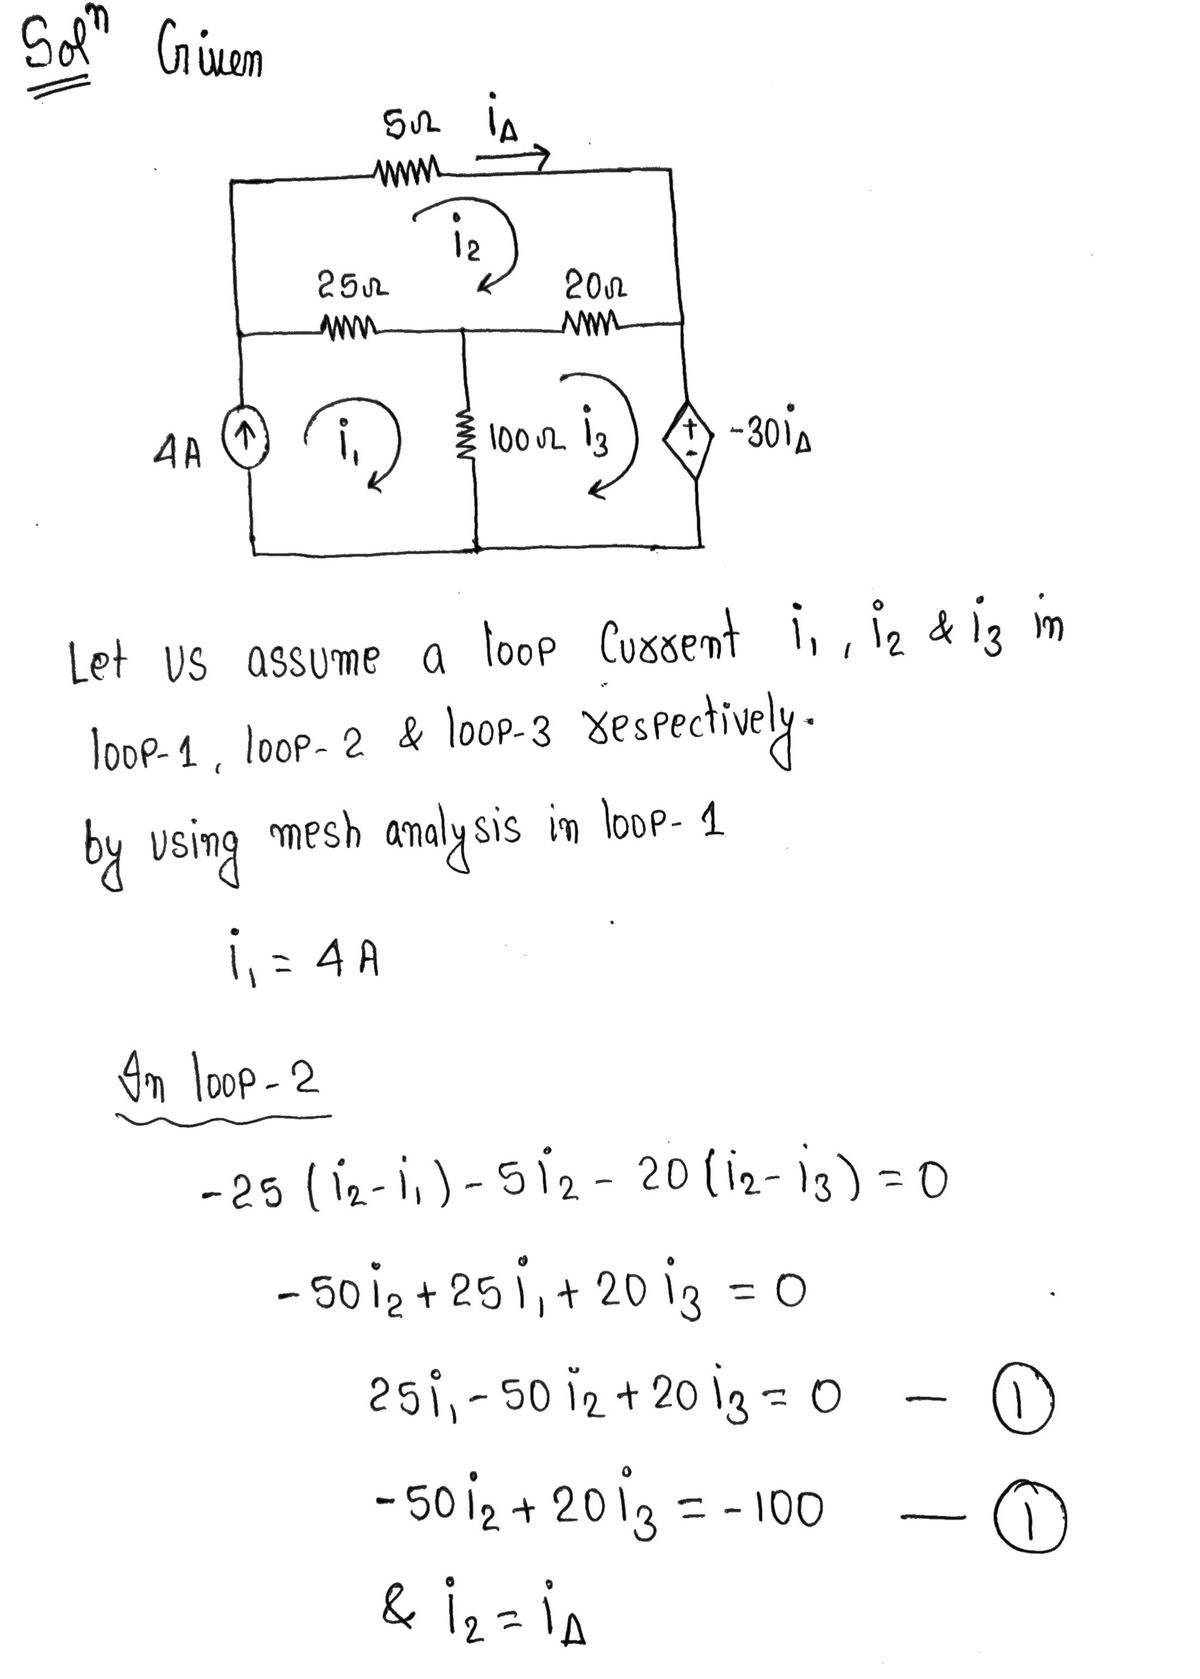 Solⁿ Given
5Ω i_Δ
i₂
25Ω 20Ω
4A i₁ 100Ω i₃ + - -30i_Δ
Let us assume a loop current i₁, i₂ & i₃ in
loop-1, loop-2 & loop-3 respectively.
by using mesh analysis in loop-1
i₁ = 4A
In loop-2
-25(i₂-i₁)-5i₂-20(i₂-i₃)=0
-50i₂+25i₁+20i₃=0
25i₁-50i₂+20i₃=0 — ①
-50i₂+20i₃=-100 — ①
& i₂=i_Δ